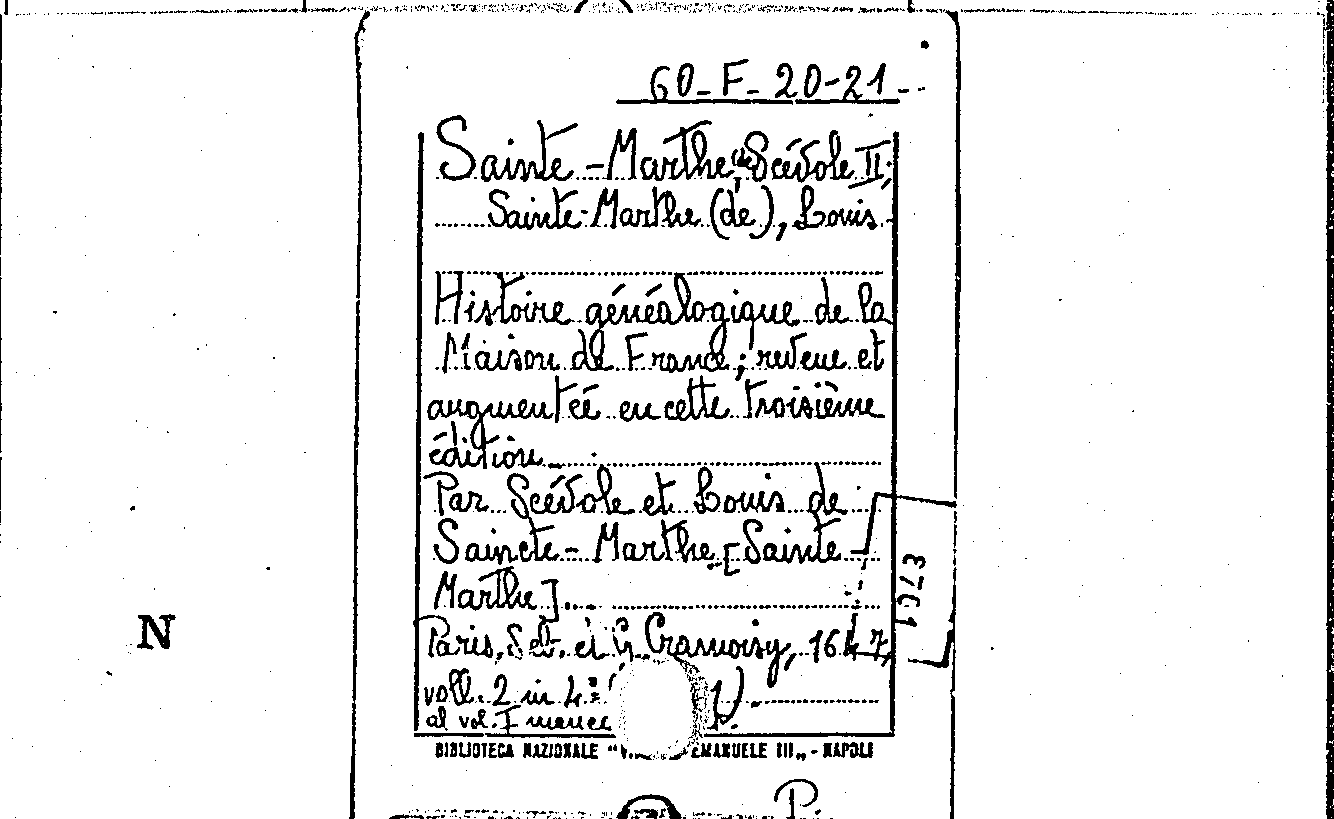 60-F-20-21
Sainte-Marthe, de Scévole II;
Sainte-Marthe (de), Louis.
Histoire généalogique de la
Maison de France; reveue et
augmentée en cette troisième
édition.
Par Scévole et Louis de
Saincte-Marthe [Sainte-
Marthe]...
3701
N
Paris, Seb. et G. Cramoisy, 1647,
voll. 2 in 4º
al vol. I manca
BIBLIOTECA NAZIONALE "V. EMANUELE III„ - NAPOLI